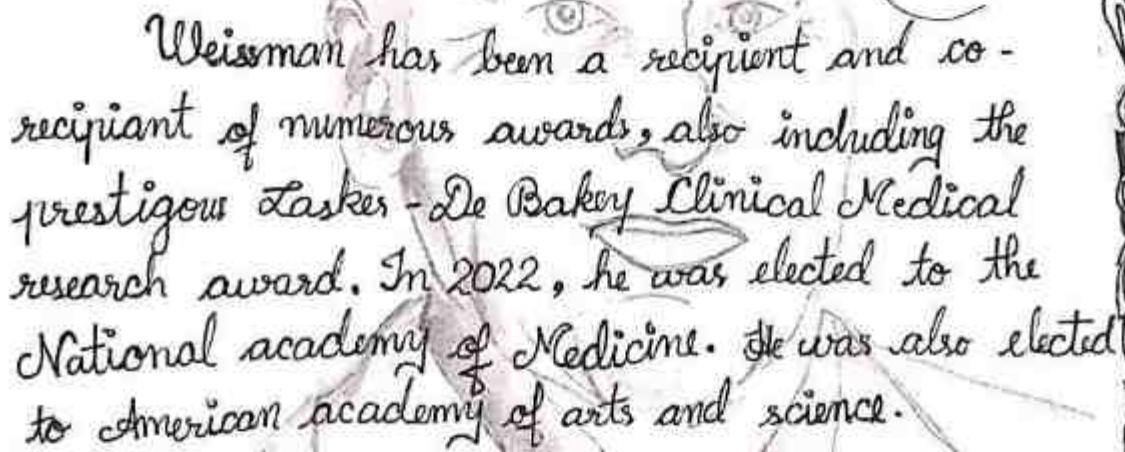 Weissman has been a recipient and co-
recipiant of numerous awards, also including the
prestigous Lasker-De Bakey Clinical Medical
research award. In 2022, he was elected to the
National academy of Medicine. He was also elected
to American academy of arts and science.